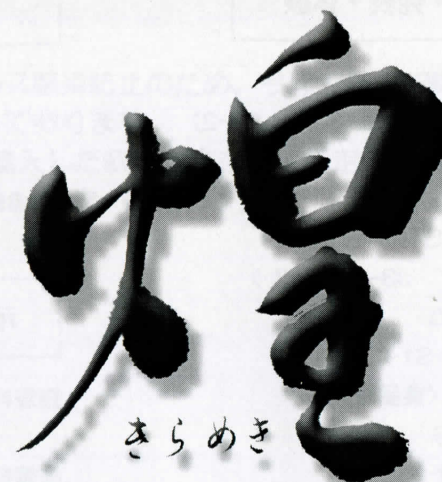 煌
きらめき